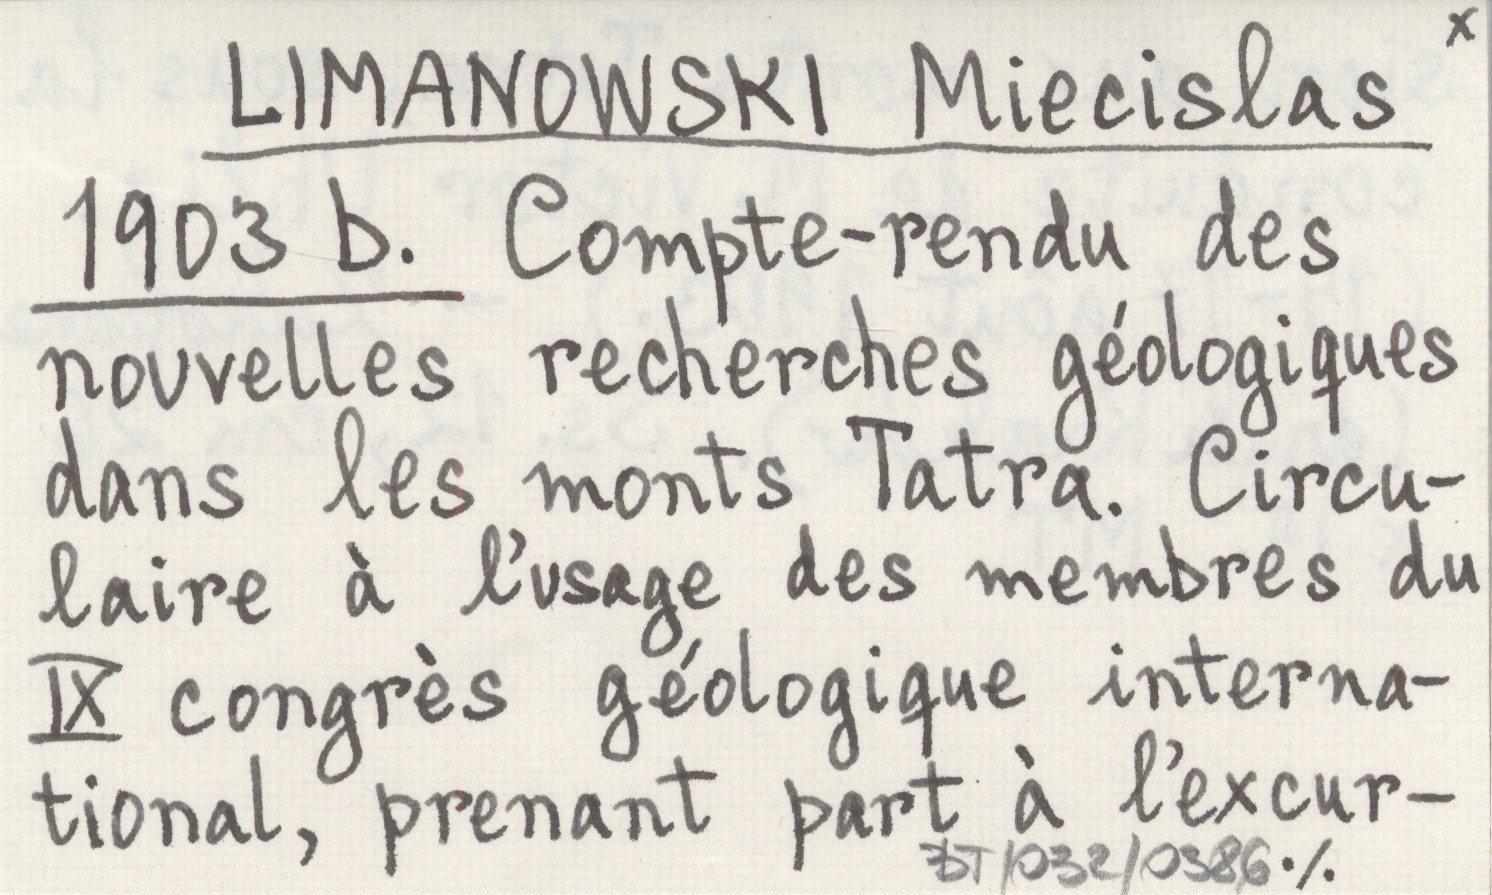 x
LIMANOWSKI Miecislas
1903 b. Compte-rendu des
nouvelles recherches géologiques
dans les monts Tatra. Circu-
laire à l'usage des membres du
IX congrès géologique interna-
tional, prenant part à l'excur-
DT/032/0386 ./.